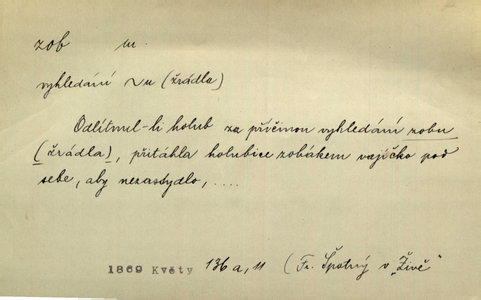 zob m.
vyhledání ~u (žrádla)
Odlítnul-li holub za příčinou vyhledání zobu
(žrádla), přitáhla holubice zobákem vajíčko pod
sebe, aby nezastydlo, ....
1869 Květy 136 a, 11 (Fr. Špatný v „Živě“